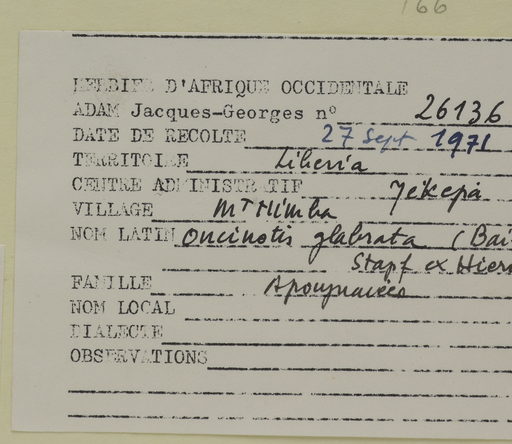 166
HERBIER D'AFRIQUE OCCIDENTALE
ADAM Jacques-Georges n° 26136
DATE DE RECOLTE 27 Sept 1971
TERRITOIRE Liberia
CENTRE ADMINISTRATIF Yekepa
VILLAGE Mt Nimba
NOM LATIN Oncinotis glabrata (Bai
Stapf ex Hiern
FAMILLE Apocynacées
NOM LOCAL
DIALECTE
OBSERVATIONS